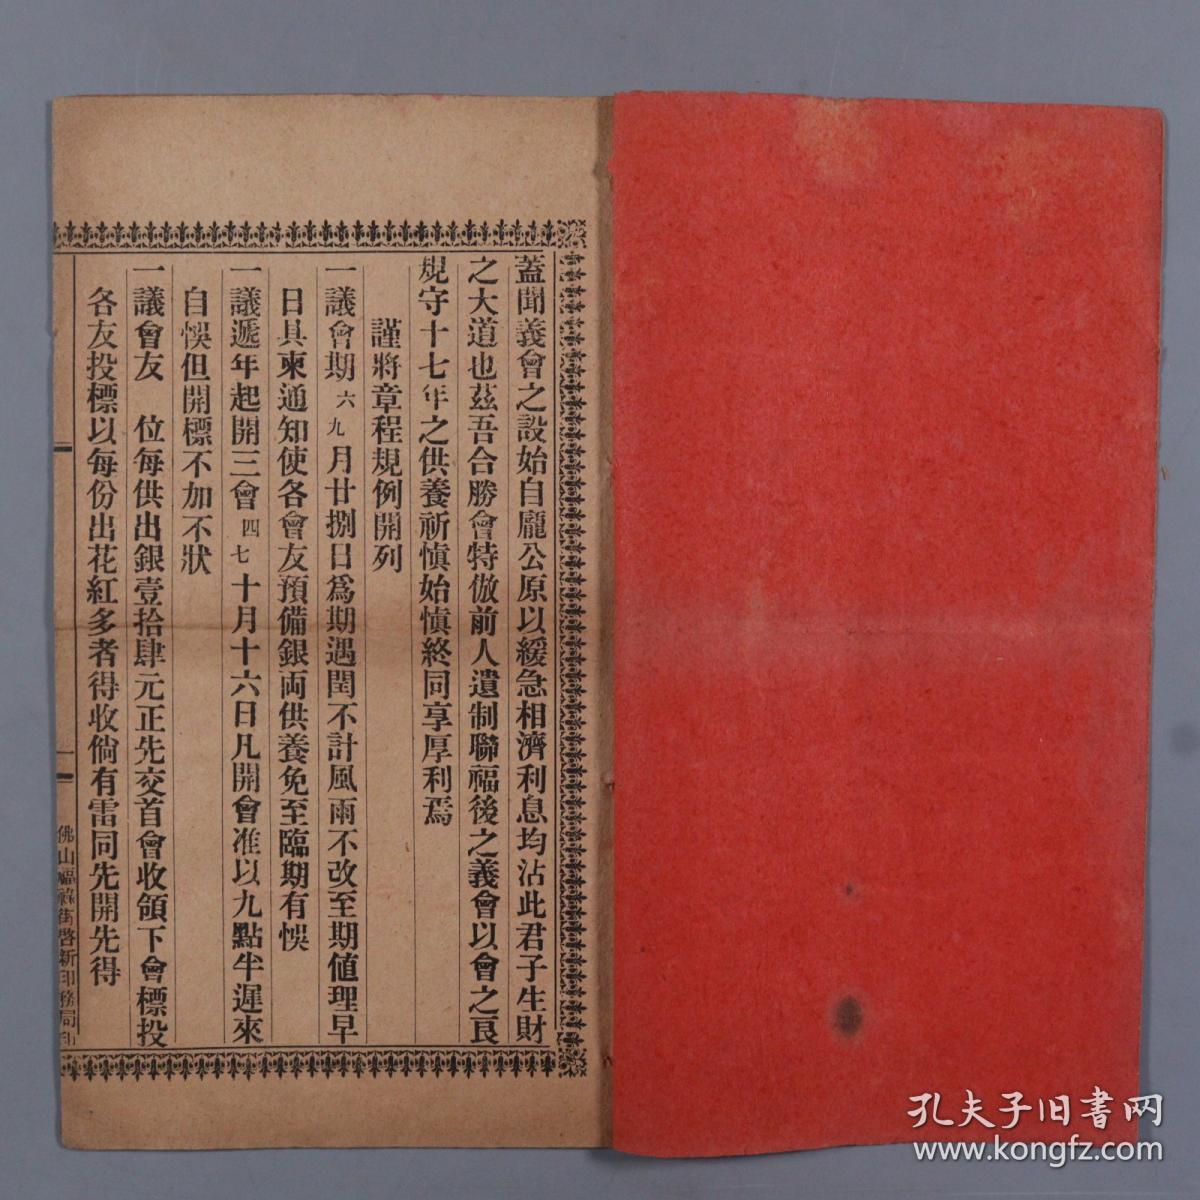 蓋聞義會之設始自龐公原以緩急相濟利息均沾此君子生財
之大道也茲吾合勝會特倣前人遺制聯福後之義會以會之良
規守十七年之供養祈慎始慎終同享厚利焉
謹將章程規例開列
一議會期六九月廿捌日爲期遇閏不計風雨不改至期値理早
日具柬通知使各會友預備銀両供養免至臨期有悞
一議遞年起開三會四七十月十六日凡開會准以九點半遲來
自悞但開標不加不狀
一議會友 位每供出銀壹拾肆元正先交首會收領下會標投
各友投標以每份出花紅多者得收倘有雷同先開先得
一
佛山福祿街啓新印務局印
孔夫子旧書网
www.kongfz.com